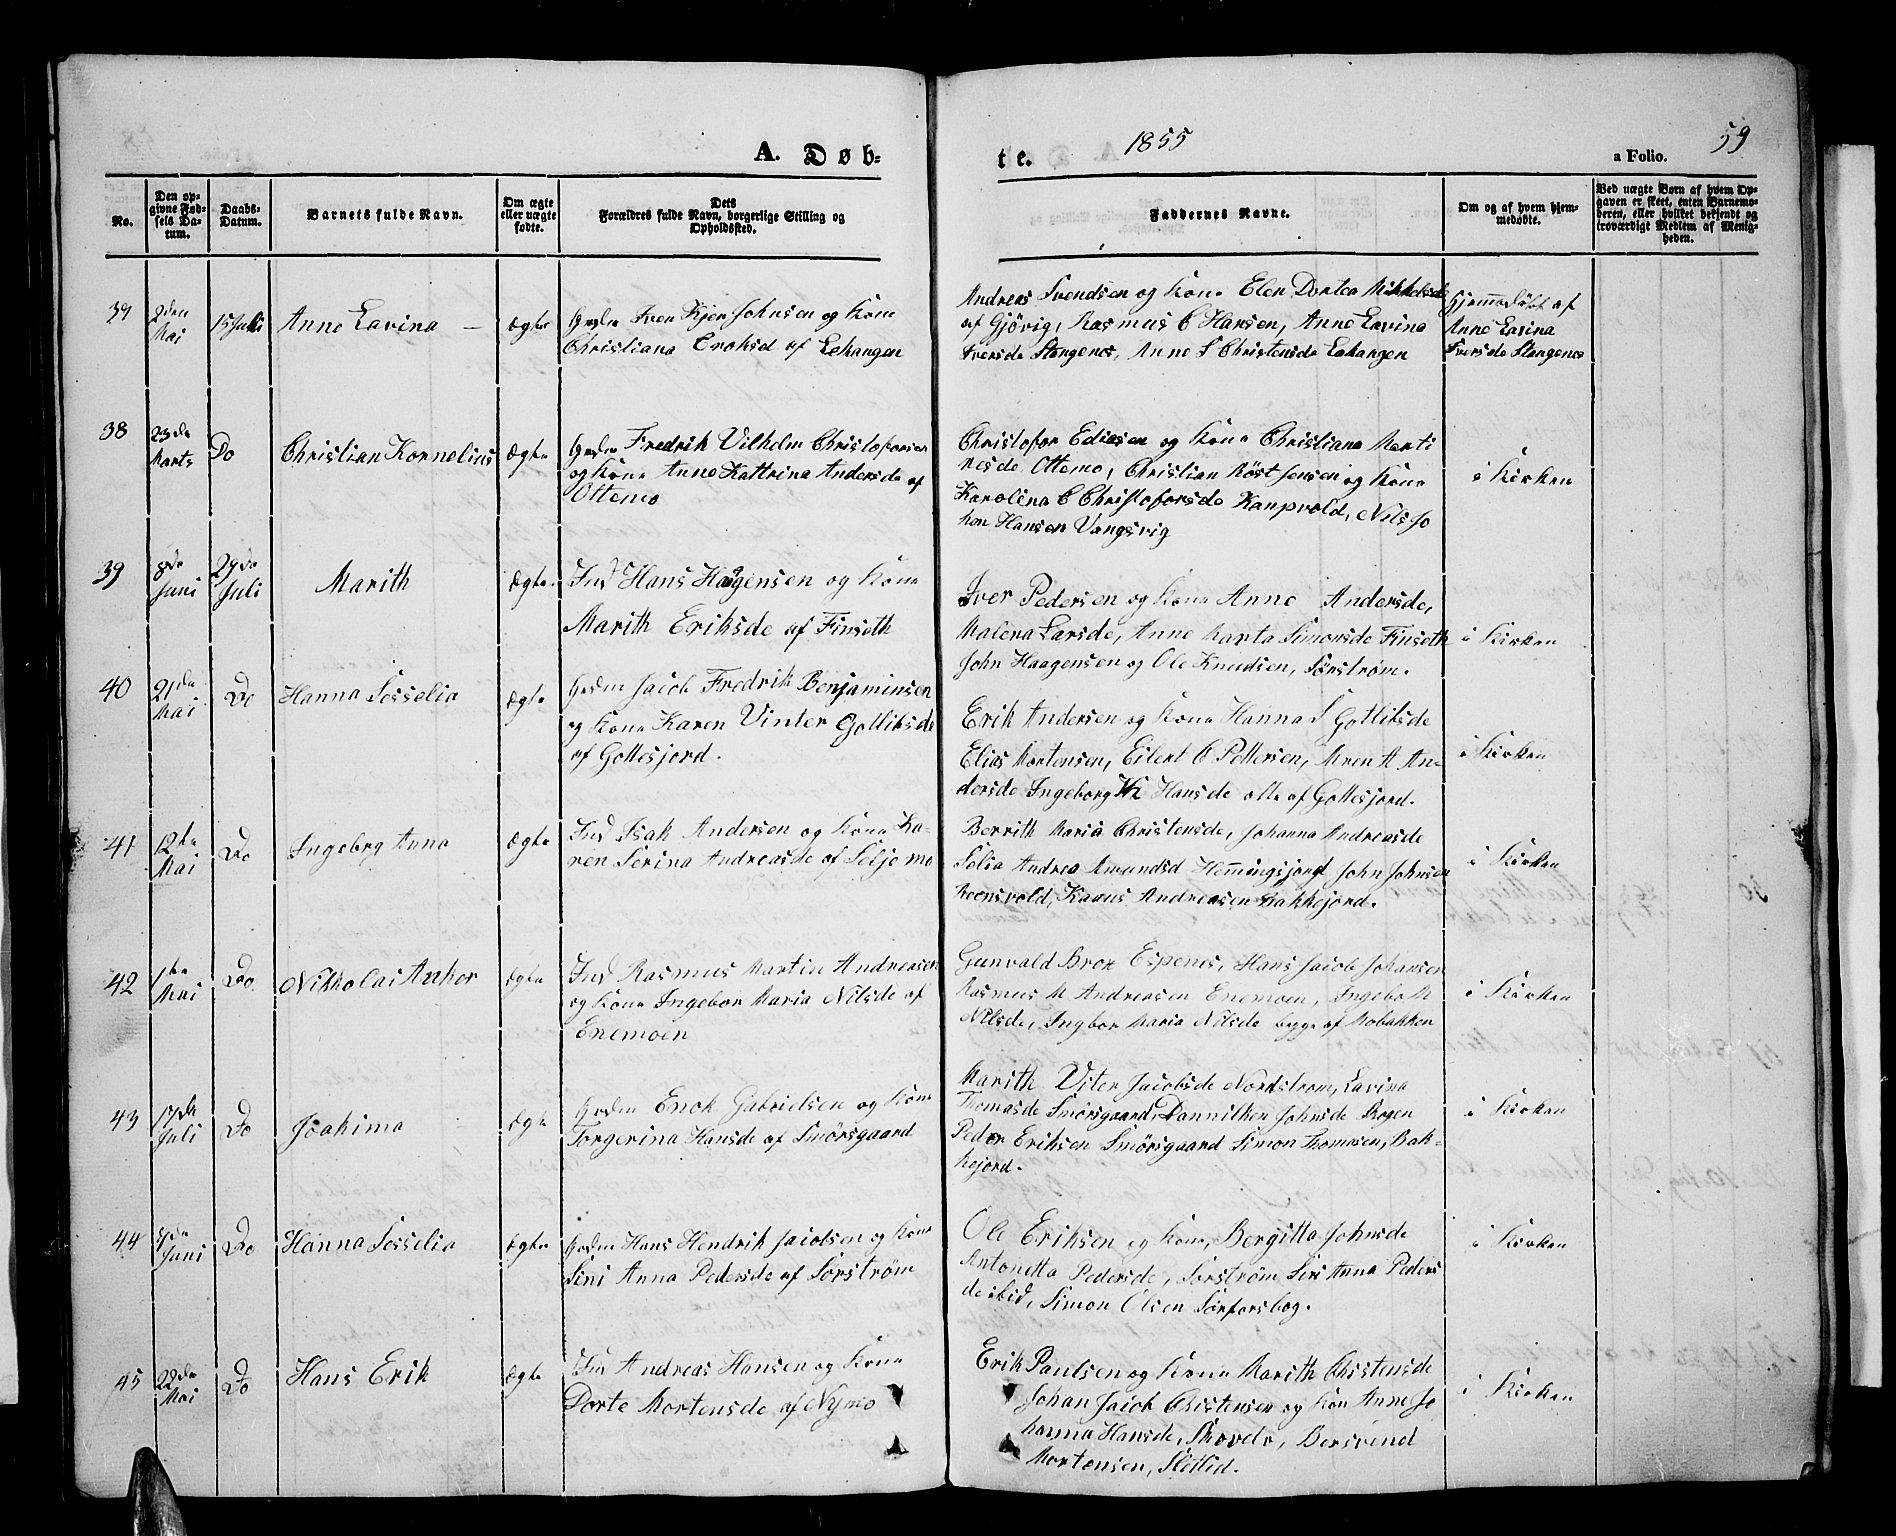 A. Døb-
te.
1855
a Folio.
59
No.
Den op-
givne Fød-
sels Da-
tum.
Daabs-
Datum.
Barnets fulde Navn.
Om ægte
eller uægte
fødte.
Dets
Forældres fulde Navn, borgerlige Stilling og
Opholdssted.
Faddernes Navne.
Om og af hvem hjem-
medøbte.
Ved uægte Børn af hvem Op-
gaven er skeet, enten Barnemo-
deren, eller hvilket bekjendt og
troværdigt Medlem af Menig-
heden.
2den
Mai
15 Juli
Anne Lavina —
Ægte
Johnsen og Kone
Christiana af Lekangen
Andreas Svendsen og Kone Elen Dortea Mikkelsde
af Gjövig, Rasmus C Hansen, Anne Lavina
Iversde Stangenes, Anne S Christensde Lekangen
Hjemmedöbt af
Anne Lavina
Iversde Stangenes
38
23de
Marts
Do
Christian Kornelius
Ægte
Fredrik Vilhelm Christofersen
og Kone Anne Kattrina Andersde af
Ottemo
Christofer Ediasen og Kone Christiana Marti
nesde Ottemo, Christian Röst Jensen og Kone
Karolina C Christofersde Kampvold, Nils Jo
han Hansen Vangsvig
i Kirken
39
8de
Juni
29de
Juli
Marith
Ægte
Ind Hans Hagensen og Kone
Marith Eriksde af Finseth
Iver Pedersen og Kone Anne Andersde,
Malena Larsde, Anne Marta Simonsde Finseth
John Haagensen og Ole Knudsen, Sørstrøm.
i Kirken
40
21de
Mai
Do
Hanna Sesselia
Ægte
Jacob Fredrik Benjaminsen
og Kone Karen Vinter Gotlibsde
af Gottesjord.
Erik Andersen og Kone Hanna S Gotlibsde
Elias Mortensen, Eilert C Pettersen, Maren A An-
dersde Ingeborg Hansde alle af Gottesjord.
i Kirken
41
12te
Mai
Do
Ingebrg Anna
Ægte
Ind Isak Andersen og Kone Ka-
ren Serina Andreasde af Seljemo
Berrith Maria Christensde, Johanna Andreasde
Selia Andrea Amundsd Hemmingsjord John Johnsen
Andreasen Bakkejord.
i Kirken
42
1te
Mai
Do
Nikkolai Anker
Ægte
Ind Rasmus Martin Andreasen
og Kone Ingebor Maria Nilsde af
Enemoen
Gunvald Brox Espenes, Hans Jacob Johansen
Rasmus M Andreasen Enemoen, Ingebo M
Nilsde, Ingbor Maria Nilsde begge af Mobakken
i Kirken
43
17de
Juli
Do
Joakima
Ægte
Enok Gabrielsen og Kone
Torgerina Hansde af Smörsgaard
Marith Viter Jacobsde Nordstrom, Lavina
Thomasde Smörsgaard, Dannikken Johnsde Skogen
Peder Eriksen Smörsgaard Simon Thomasen, Bak-
kejord.
i Kirken
44
7de
Juni
Do
Hanna Sesselia
Ægte
Hans Hendrik Jacobsen og Kone
Sini Anna Pedersde af Sørstrøm
Ole Eriksen og Kone, Bergitta Johnsde
Antonetta Pedersde, Sørstrøm Siri Anna Peders
de ibid, Simon Olsen Sørforsbog.
i Kirken
45
22de
Mai
Do
Hans Erik
Ægte
Ind Andreas Hansen og Kone
Dorte Mortensde af Nymo
Erik Paulsen og Kone Marith Christensde
Johan Jacob Christensen og Kone Anne Jo
hanna Hansde, Skovde, Bersvend
Mortensen, Slettlid.
i Kirken